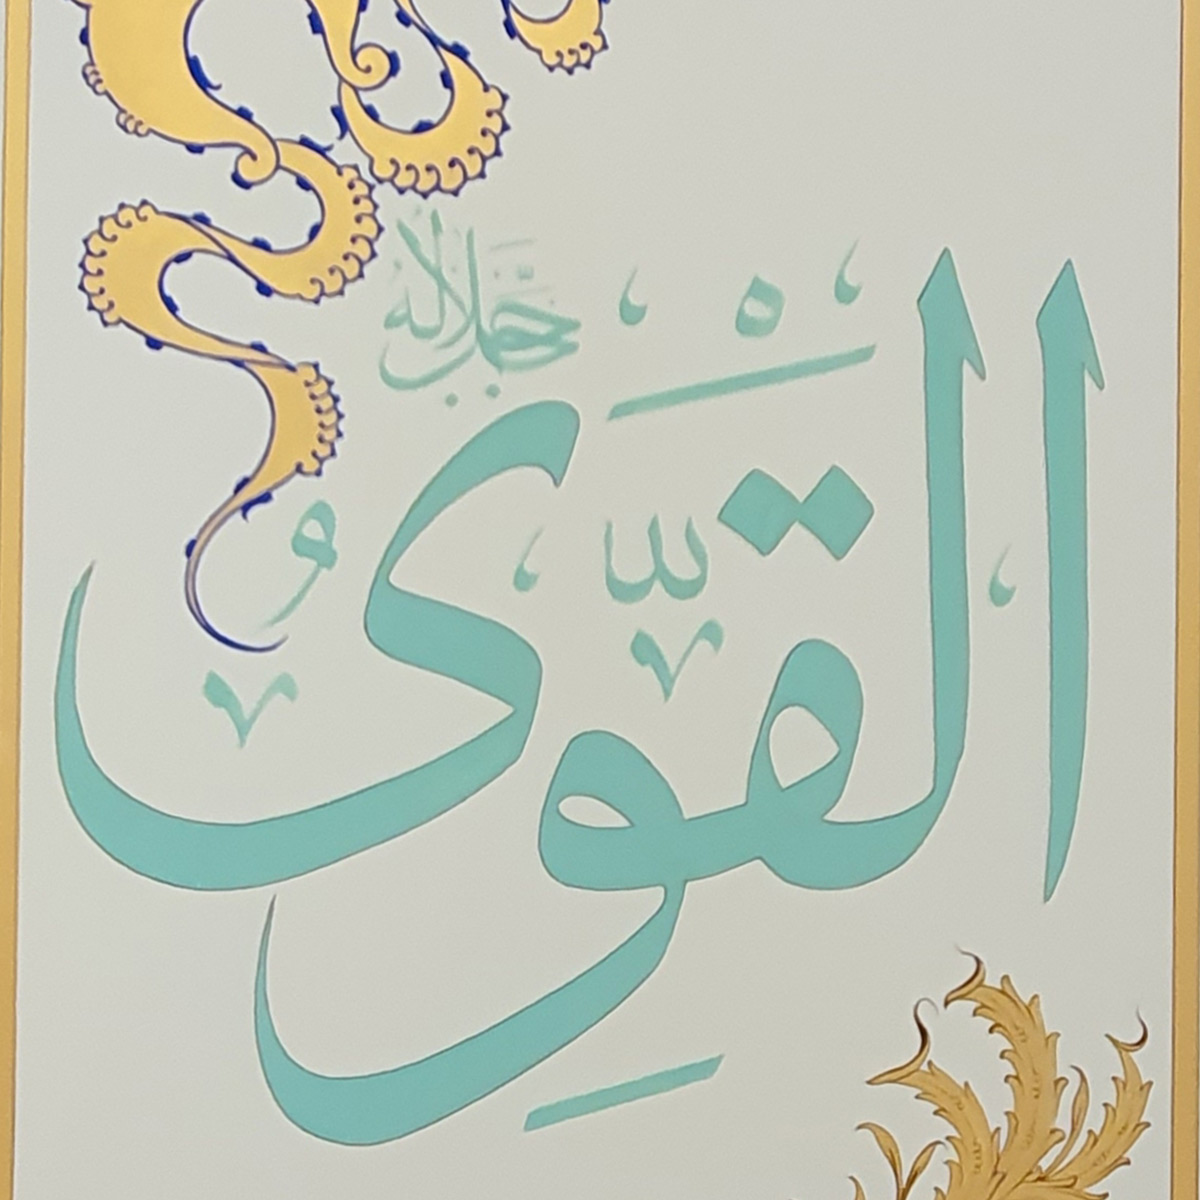 القوى
جل جلاله